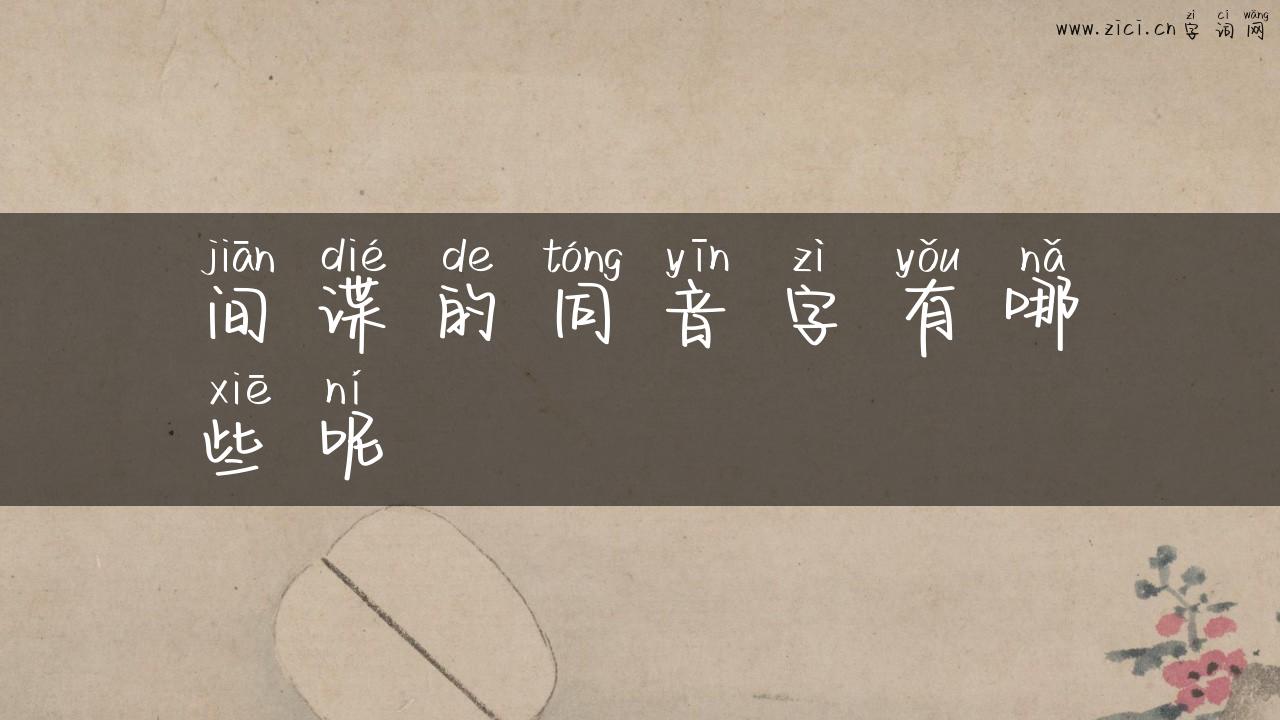 zì cí wǎng
www.zici.cn字词网
jiān dié de tóng yīn zì yǒu nǎ
间谍的同音字有哪
xiē ní
些呢